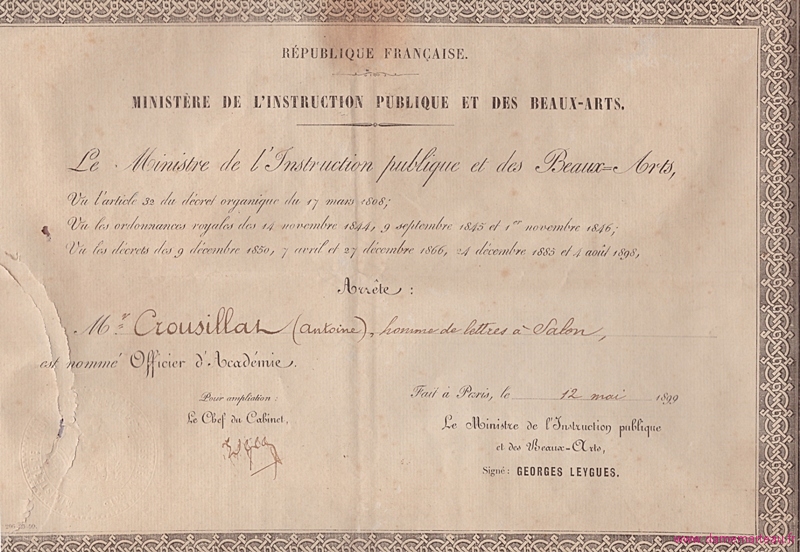 RÉPUBLIQUE FRANÇAISE.
MINISTÈRE DE L'INSTRUCTION PUBLIQUE ET DES BEAUX-ARTS.
Le Ministre de l'Instruction publique et des Beaux=Arts,
Vu l'article 32 du décret organique du 17 mars 1808;
Vu les ordonnances royales des 14 novembre 1844, 9 septembre 1845 et 1er novembre 1846;
Vu les décrets des 9 décembre 1850, 7 avril et 27 décembre 1866, 24 décembre 1885 et 4 août 1898,
Arrête :
Mr Crousillat (Antoine), homme de lettres à Salon,
est nommé Officier d'Académie.
Pour ampliation :
Le Chef du Cabinet,
Fait à Paris, le 12 mai 1899
Le Ministre de l'Instruction publique
et des Beaux-Arts,
Signé : GEORGES LEYGUES.